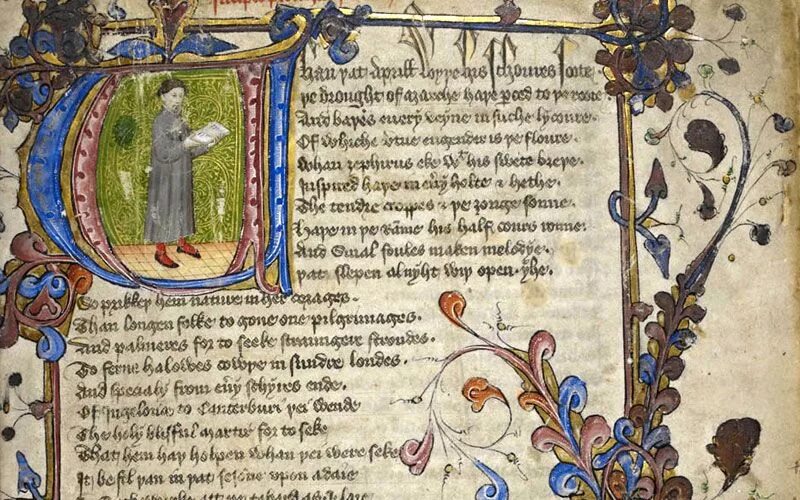 Whan þat Aprill wyþe his schoures soote ·
Þe drought of marche haþe pced to þe roote
And baþes every veyne in suche lycoure ·
Of whiche vtue engender is þe floure ·
Whan ȝephirus eke wt his swete breþe ·
Inspired haþe in eu'y holte & heþe ·
The tendre croppes & þe ȝonge sonne ·
Haþe in þe rame his half cours ronne ·
And smal foules maken melodye ·
þat slepen al nyht wiþ open yhe ·
So prikkeþ hem nature in her corages ·
Than longen folke to gone one pilgrimages ·
And palmeres for to seeke straungere strondes ·
To ferne halowes cowþe in sundre londes ·
And specialy from eu'y schyres ende ·
Of Ingelond to Canterburi þei wende
The holy blisful martir for to seke
That hem haþ holpen whan þei were seke
It befil þan in þat sesone upon a daie